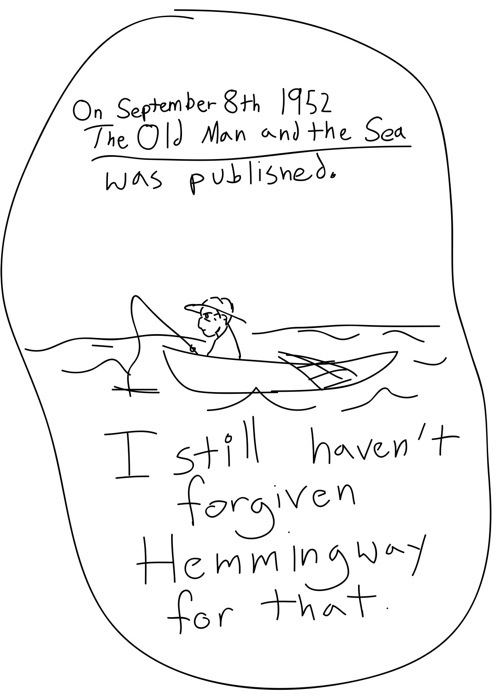 On September 8th 1952
The Old Man and the Sea
was published.
I still haven't
forgiven
Hemmingway
for that.